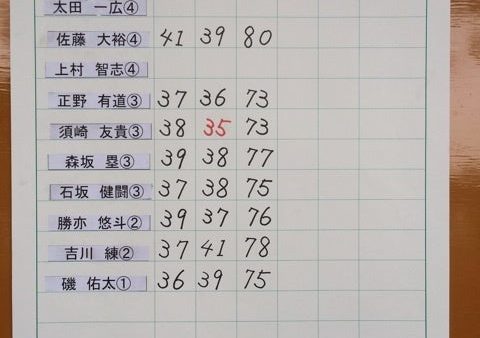 太田 一広④
佐藤 大裕④ 41 39 80
上村 智志④
正野 有道③ 37 36 73
須崎 友貴③ 38 35 73
森坂 塁③ 39 38 77
石坂 健闘③ 37 38 75
勝亦 悠斗② 39 37 76
吉川 練② 37 41 78
磯 佑太① 36 39 75